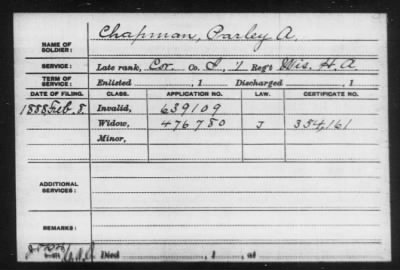 NAME OF SOLDIER: Chapman, Parley A.
SERVICE: Late rank, Cor. Co. I, 1 Reg't Wis. H. A.
TERM OF SERVICE: Enlisted , 1 Discharged , 1
DATE OF FILING. CLASS. APPLICATION NO. LAW. CERTIFICATE NO.
1888 Feb. 8. Invalid, 639109
Widow, 476780 J 334,161
Minor,
ADDITIONAL SERVICES:
REMARKS:
Died , 1 , at